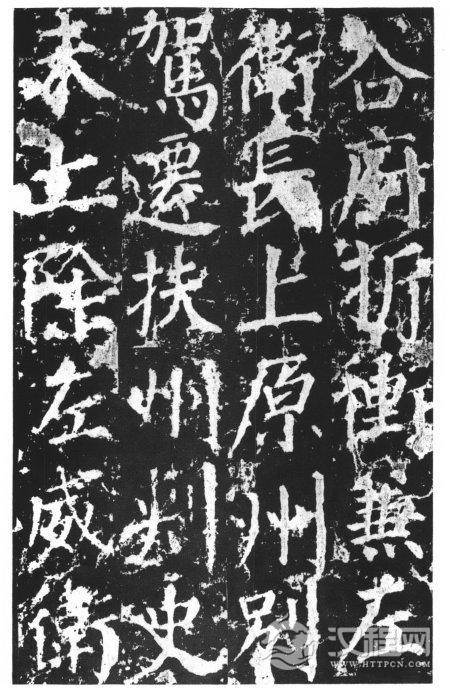 谷府折衝兼左
衛長上原州別
駕遷扶州刾史
未上除左威衛
汉程网
WWW.HTTPCN.COM